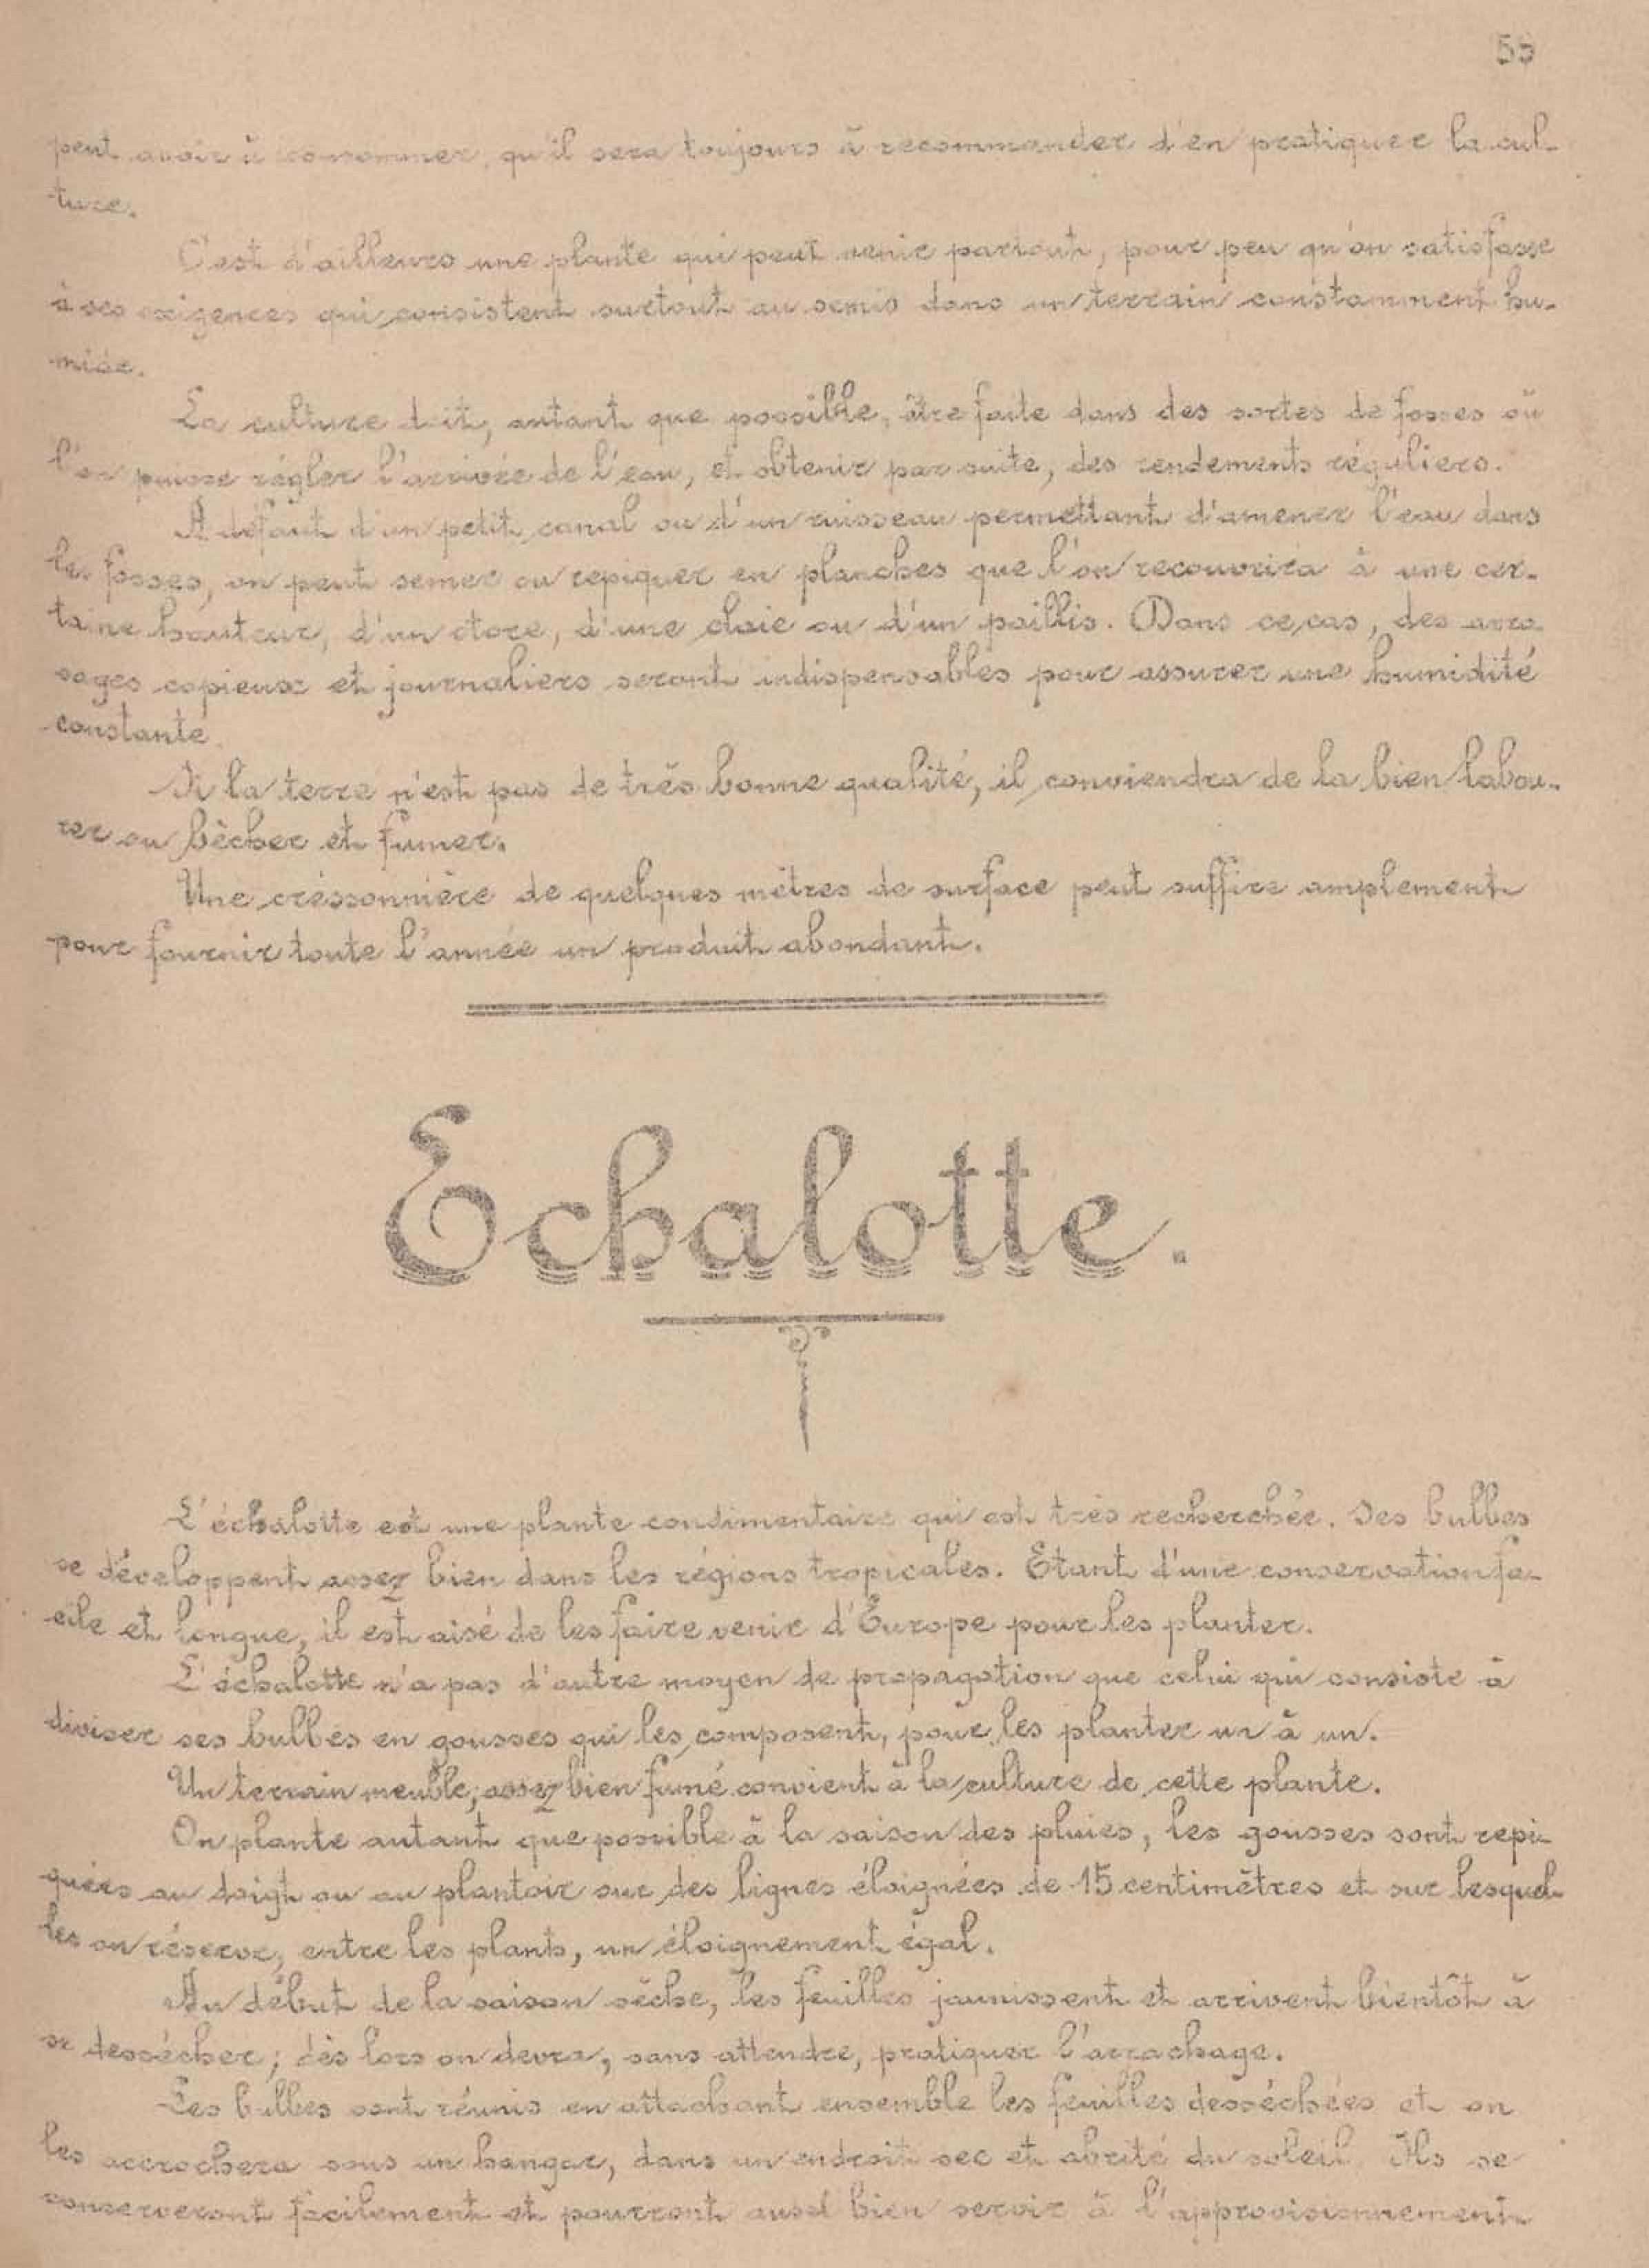 55
peut avoir à consommer, qu'il sera toujours à recommander d'en pratiquer la cul-
ture.
C'est d'ailleurs une plante qui peut venir partout, pour peu qu'on satisfasse
à ses exigences qui consistent surtout au semis dans un terrain constamment hu-
mide.
La culture doit, autant que possible, être faite dans des sortes de fosses où
l'on puisse régler l'arrivée de l'eau, et obtenir par suite, des rendements réguliers.
A défaut d'un petit canal ou d'un ruisseau permettant d'amener l'eau dans
les fosses, on peut semer ou repiquer en planches que l'on recouvrira à une cer-
taine hauteur, d'un store, d'une claie ou d'un paillis. Dans ce cas, des arro-
sages copieux et journaliers seront indispensables pour assurer une humidité
constante.
Si la terre n'est pas de très bonne qualité, il conviendra de la bien labou-
rer ou bêcher et fumer.
Une cressonnière de quelques mètres de surface peut suffire amplement
pour fournir toute l'année un produit abondant.
Echalotte.
L'échalotte est une plante condimentaire qui est très recherchée. Ses bulbes
se développent assez bien dans les régions tropicales. Etant d'une conservation fa-
cile et longue, il est aisé de les faire venir d'Europe pour les planter.
L'échalotte n'a pas d'autre moyen de propagation que celui qui consiste à
diviser ses bulbes en gousses qui les composent, pour les planter un à un.
Un terrain meuble, assez bien fumé convient à la culture de cette plante.
On plante autant que possible à la saison des pluies, les gousses sont repi-
quées au doigt ou au plantoir sur des lignes éloignées de 15 centimètres et sur lesquel-
les on réserve, entre les plants, un éloignement égal.
Au début de la saison sèche, les feuilles jaunissent et arrivent bientôt à
se dessécher; dès lors on devra, sans attendre, pratiquer l'arrachage.
Les bulbes sont réunis en attachant ensemble les feuilles desséchées et on
les accrochera sous un hangar, dans un endroit sec et abrité du soleil. Ils se
conserveront facilement et pourront aussi bien servir à l'approvisionnement